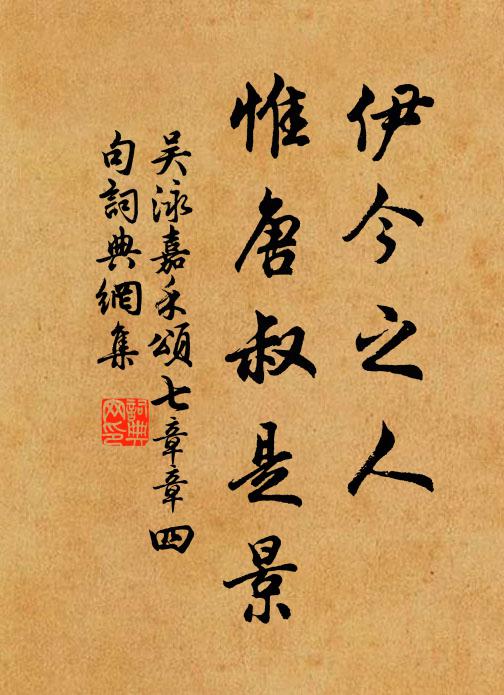 伊今之人
惟唐叔是景
吴泳嘉禾頌七章章四
句詞典網集
詞典網印